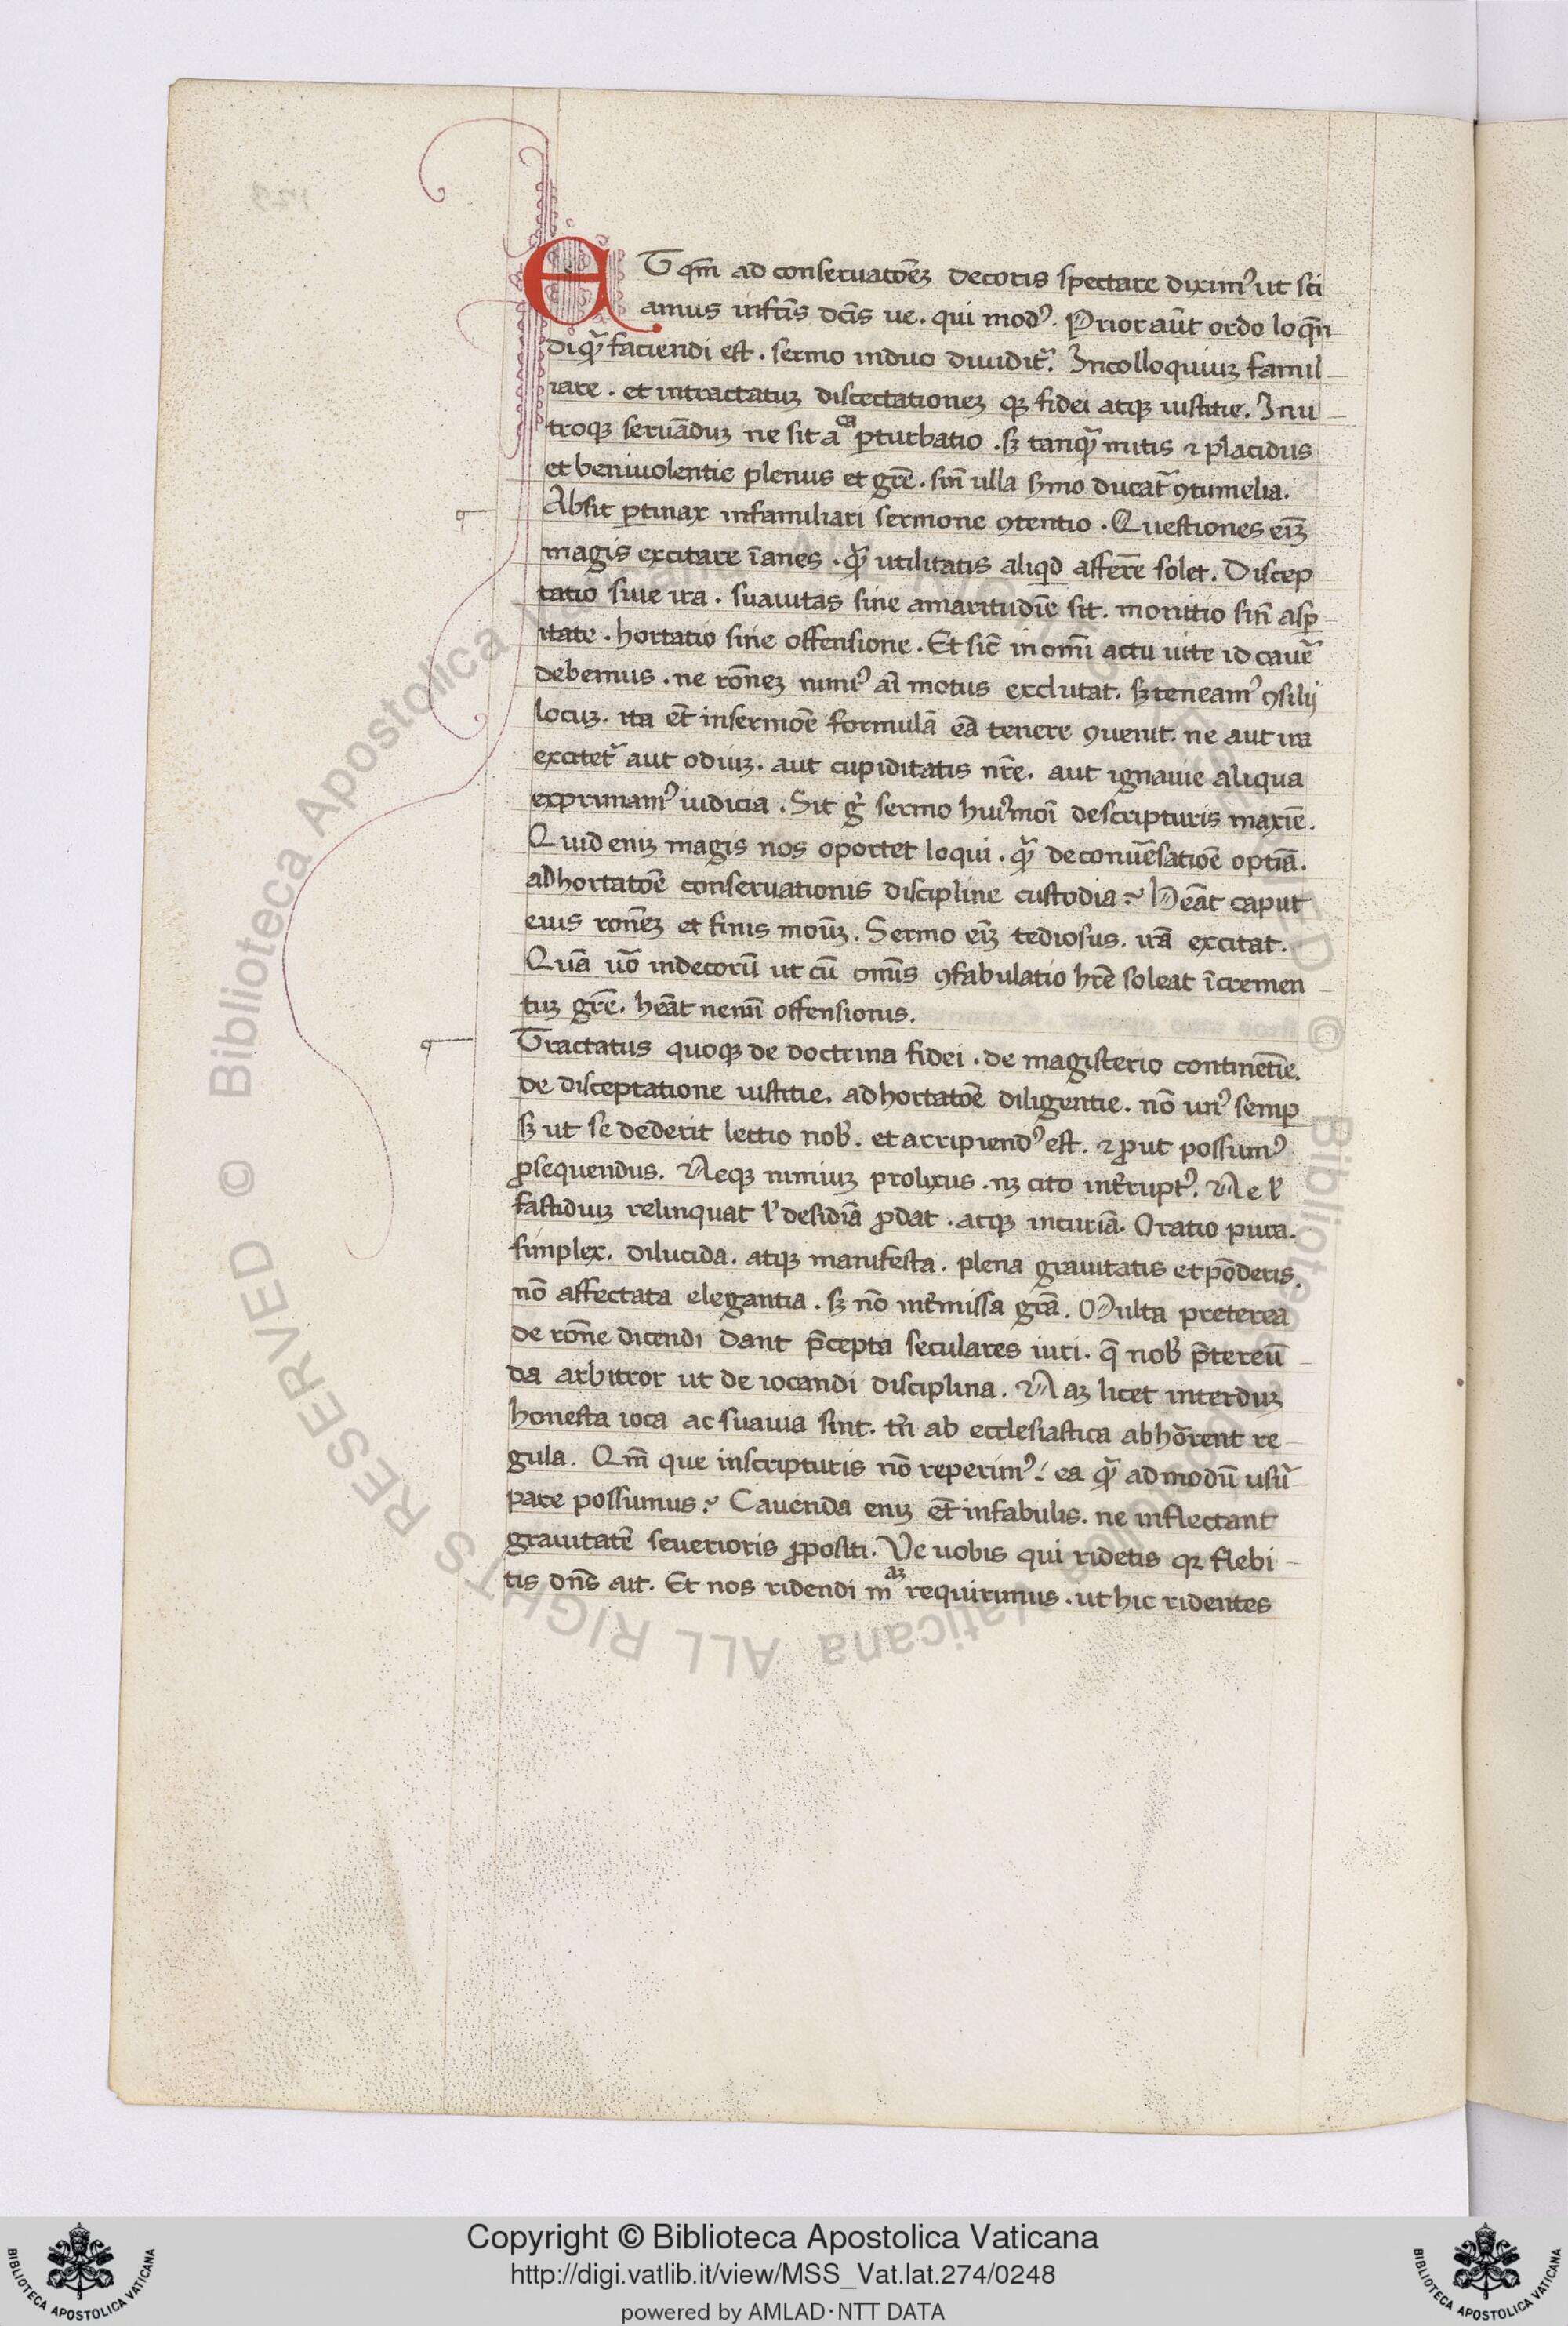 ET qm̄ ad conseruatoēz decoris spectare diximꝰ ut sci
amus in sc̄is dc̄is ue. qui modꝰ. Prior aūt ordo loqn̄
di qᷓ faciendi est. sermo in duo diuidit᷑. In colloquiuꝫ famil
iare. et in tractatuꝫ discectationeꝫ qꝫ fidei atqꝫ iustitie. In u
troqꝫ seruāduꝫ ne sit a ꝑturbatio. sꝫ tanqᷓ mitis ⁊ placidus
et beniuolentie plenus et grē. sin̄ ulla ẜmo ducat᷑ ꝯtumelia.
Absit ꝑtinax in familiari sermone ꝯtentio. Questiones eīꝫ
magis excitare īanes. qᷓ utilitatis aliqd afferr̄e solet. Discep
tatio siue ira. suauitas sine amaritudīe sit. monitio sin̄ asꝑ
itate. hortatio sine offensione. Et sic̄ in om̄i actu uite id cauer̄
debemus. ne rōneꝫ nimiꝰ ai̅ motus excludat. sꝫ teneamꝰ ꝯsilij
locuꝫ. ita et̄ in sermōe formulā eā tenere ꝯuenit. ne aut ira
excitet᷑ aut odiuꝫ. aut cupiditatis nr̄e. aut ignauie aliqua
exprimamꝰ iudicia. Sit gͦ sermo huiꝰmōi de scripturis maxīe.
Quid eniꝫ magis nos oportet loqui. qᷓ de conuer̄satiōe optīā.
adhortatōe conseruationis discipline custodia? Heāt caput
eius ronēꝫ et finis modūꝫ. Sermo eīꝫ tediosus. irā excitat.
Quā uō indecorū ut cū om̄is ꝯfabulatio hr̄e soleat īcremen
tuꝫ grē. heāt neuū offensionis.
Tractatus quoqꝫ de doctrina fidei. de magisterio continētie.
de disceptatione iustitie. adhortatōe diligentie. nō unꝰ semꝑ
sꝫ ut se dederit lectio nob̄. et arripiendꝰ est. ⁊ ꝓut possumꝰ
ꝓsequendus. Neqꝫ nimiuꝫ prolixus. nꝫ cito int̄ruptꝰ. Ne ł
fastidiuꝫ relinquat ł desidiā ꝓdat. atqꝫ incuriā. Oratio pura.
simplex. dilucida. atqꝫ manifesta. plena grauitatis et pōderis.
nō affectata elegantia. sꝫ nō int̄missa grā. Multa preterea
de rōne dicendi dant p̄cepta seculares uiri. q̄ nob̄ p̄tereū
da arbitror ut de iocandi disciplina. Naꝫ licet interduꝫ
honesta ioca ac suauia sint. tn̄ ab ecclesiastica abhōrent re
gula. Qm̄ que in scripturis nō reperimꝰ. ea qᷓ admodū usu᷑
pare possumus? Cauenda eniꝫ et̄ in fabulis. ne inflectant
grauitatē seuerioris ꝓpositi. Ve uobis qui ridetis qꝛ flebi
tis dn̄s ait. Et nos ridendi m requirimus. ut hic ridentes
Copyright © Biblioteca Apostolica Vaticana
http://digi.vatlib.it/view/MSS_Vat.lat.274/0248
powered by AMLAD·NTT DATA
BIBLIOTECA APOSTOLICA VATICANA
BIBLIOTECA APOSTOLICA VATICANA